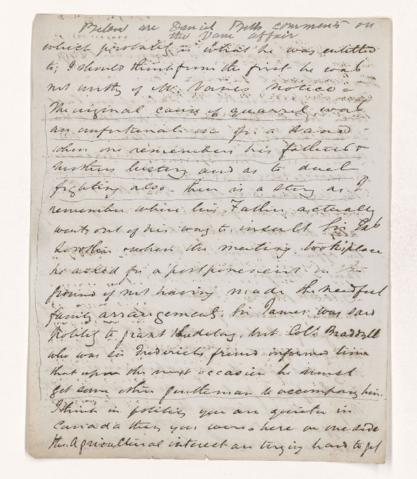 Below are Daniel comments on
the Vane affair
which probably is what he was entitled
to; I should think from the first he was
not worthy of Mr. Vanes notice
The original cause of quarrel was
an unfortunate one for a Vane
when one remembers his father &
history and as to duel
fighting also there is a story as I
remember where his Father actually
went out of his way to insult
Lowther when the meeting took place
he asked for a postponement on the
ground of not having made the needful
family arrangements, Sir James was said
politely to grant the delay, but Col. Braddyll
who was Sir Fredericks friend informed him
that upon the next occasion he must
get some other gentleman to accompany him.
I think in politics you are quieter in
Canada than you were here on one side
the Agricultural interest are trying hard to get